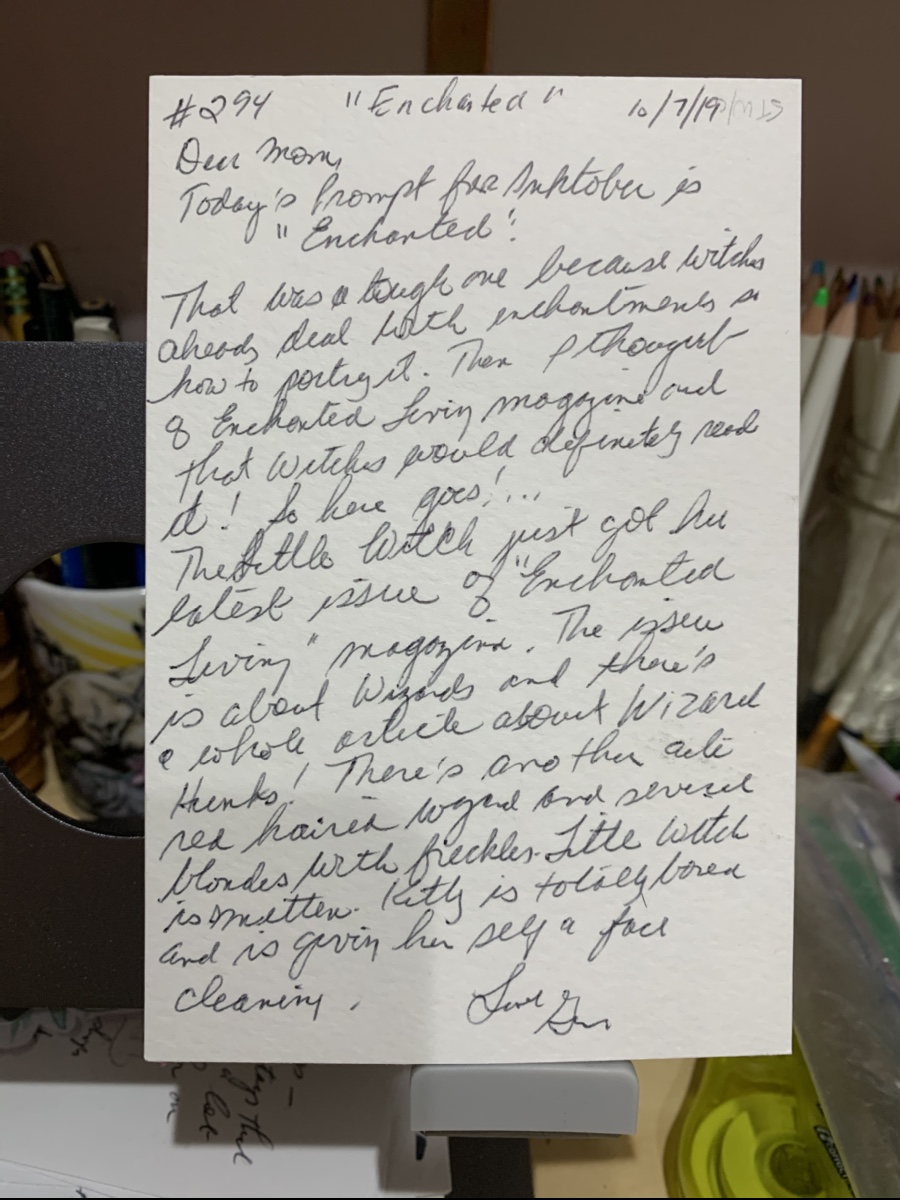 #294 "Enchanted" 10/7/19
Dear Mom,
Today's Prompt for Inktober is
"Enchanted".
That was a tough one because witches
already deal with enchantments so
how to portray it. Then I thought
of Enchanted Living magazine and
that Witches would definitely read
it! So here goes!...
The Little Witch just got her
latest issue of "Enchanted
Living" magazine. The issue
is about Wizards and there's
a whole article about Wizard
Hunks! There's another cute
red haired wizard and several
blondes with freckles. Little Witch
is smitten. Kitty is totally bored
and is givin her self a face
cleaning.
Love